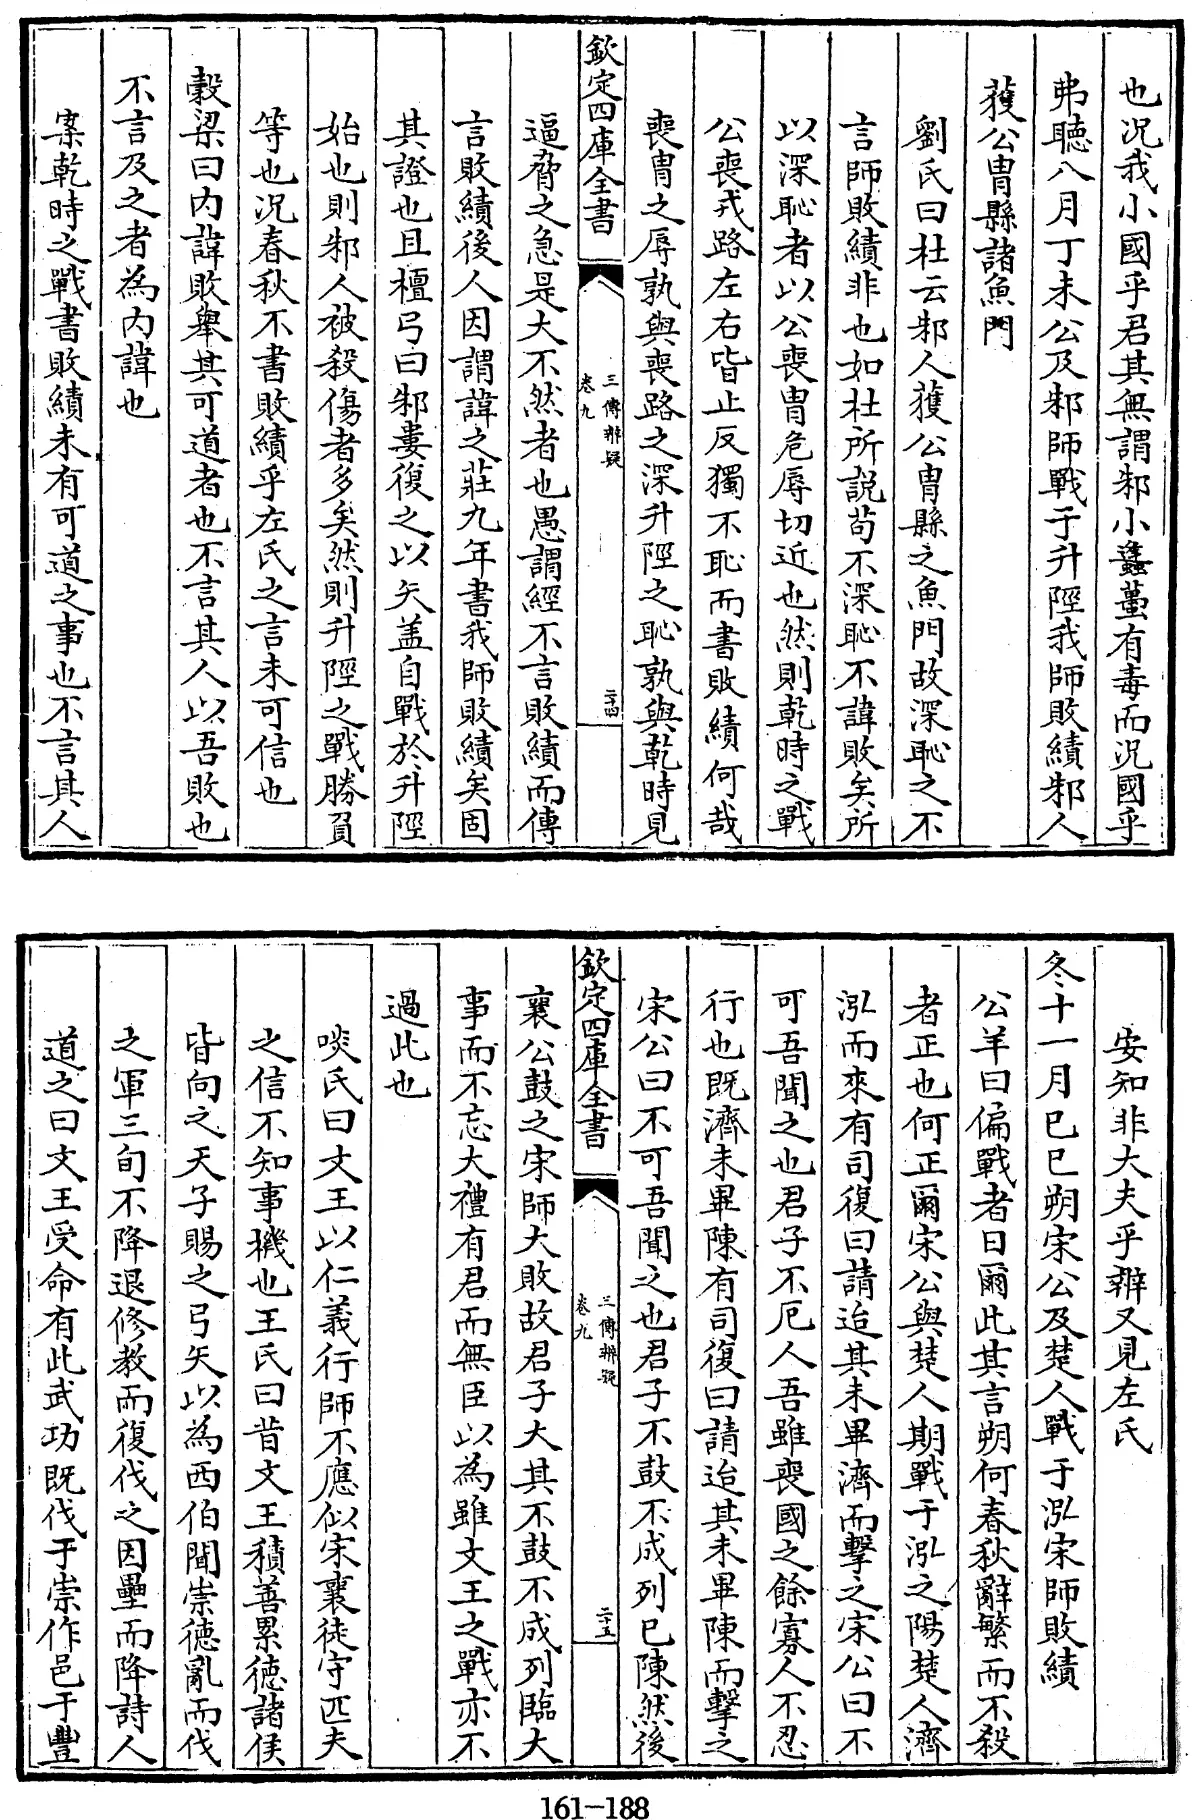 也况我小國乎君其無謂邾小蠭蠆有毒而况國乎
弗聽八月丁未公及邾師戰于升陘我師敗績邾人
獲公胄縣諸魚門
劉氏曰杜云邾人獲公胄縣之魚門故深恥之不
言師敗績非也如杜所説茍不深恥不諱敗矣所
以深恥者以公喪胄危辱切近也然則乾時之戰
公喪戎路左右皆止反獨不恥而書敗績何哉
喪胄之辱孰與喪路之深升陘之恥孰與乾時見
欽定四庫全書
三傳辨疑
卷九
二十四
逼脅之急是大不然者也愚謂經不言敗績而傳
言敗績後人因謂諱之莊九年書我師敗績矣固
其證也且檀弓曰邾婁復之以矢盖自戰於升陘
始也則邾人被殺傷者多矣然則升陘之戰勝負
等也况春秋不書敗績乎左氏之言未可信也
穀梁曰内諱敗舉其可道者也不言其人以吾敗也
不言及之者為内諱也
案乾時之戰書敗績未有可道之事也不言其人
安知非大夫乎辨又見左氏
冬十一月已巳朔宋公及楚人戰于泓宋師敗績
公羊曰偏戰者日爾此其言朔何春秋辭繁而不殺
者正也何正爾宋公與楚人期戰于泓之陽楚人濟
泓而來有司復曰請迨其未畢濟而擊之宋公曰不
可吾聞之也君子不厄人吾雖喪國之餘寡人不忍
行也既濟未畢陳有司復曰請迨其未畢陳而擊之
宋公曰不可吾聞之也君子不鼓不成列已陳然後
欽定四庫全書
三傳辨疑
卷九
二十五
襄公鼓之宋師大敗故君子大其不鼓不成列臨大
事而不忘大禮有君而無臣以為雖文王之戰亦不
過此也
啖氏曰文王以仁義行師不應似宋襄徒守匹夫
之信不知事機也王氏曰昔文王積善累徳諸侯
皆向之天子賜之弓矢以為西伯聞崇徳亂而伐
之軍三旬不降退修教而復伐之因壘而降詩人
道之曰文王受命有此武功既伐于崇作邑于豐
161-188